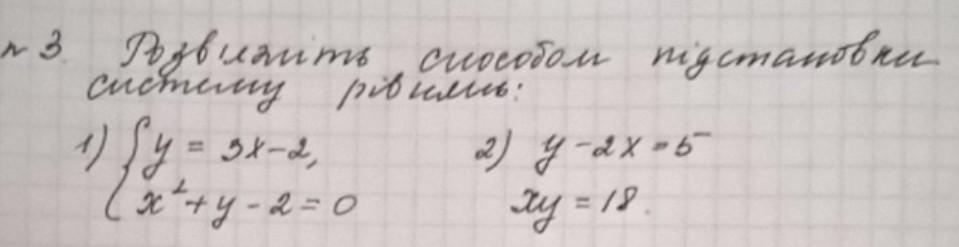 № 3. Розв'яжіть способом підстановки
систему рівнянь:
1) { y = 3x - 2,
x² + y - 2 = 0
2) y - 2x = 5
xy = 18.